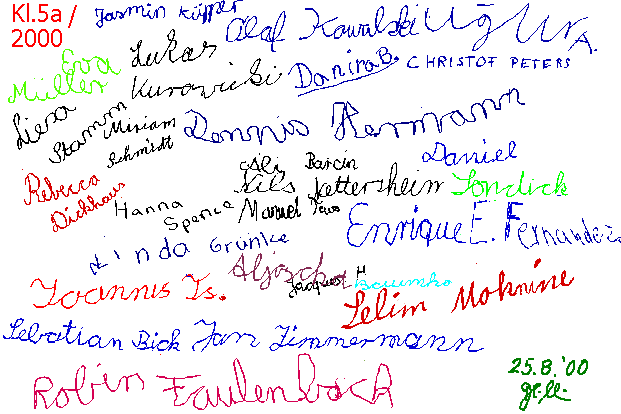 Kl.5a /
2000
Jasmin Küpper
Olaf Kowalski
Uğur A.
Eva
Müller
Lukas
Kurowicki
Danira B.
CHRISTOF PETERS
Liesa
Stamm
Miriam
Schmidt
Dennis Hermann
Daniel
Rebecca
Dickhaus
Ali Barcin
Nils Kettershein
Hanna
Spence
Manuel
Enrique E. Fernandez
Linda Grunke
Aljoscha
Jacqueline H
Ioannis Ts.
Selim Moknine
Sebatian Bick
Jan Zimmermann
Robin Faulenbach
25.8.'00